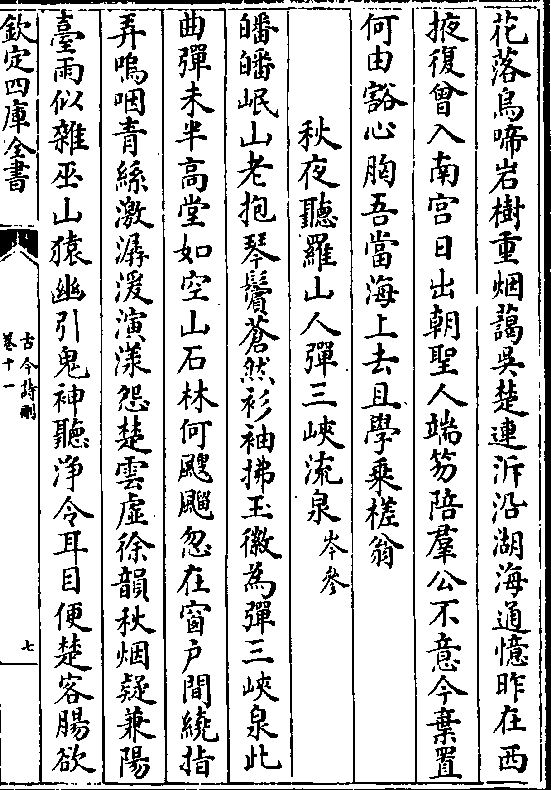 花落鳥啼岩樹重烟藹吳楚連泝沿湖海通憶昨在西
掖復曾入南宫日出朝聖人端笏陪羣公不意今棄置
何由豁心胸吾當海上去且學乗槎翁
秋夜聽羅山人彈三峽流泉 岑參
皤皤岷山老抱琴鬢蒼然衫袖拂玉徽為彈三峽泉此
曲彈未半高堂如空山石林何颼飀忽在窗户間繞指
弄嗚咽青絲激潺湲演漾怨楚雲虚徐韻秋烟疑兼陽
臺雨似雜巫山猿幽引鬼神聽淨令耳目便楚客腸欲
欽定四庫全書
古今詩刪
卷十一
七